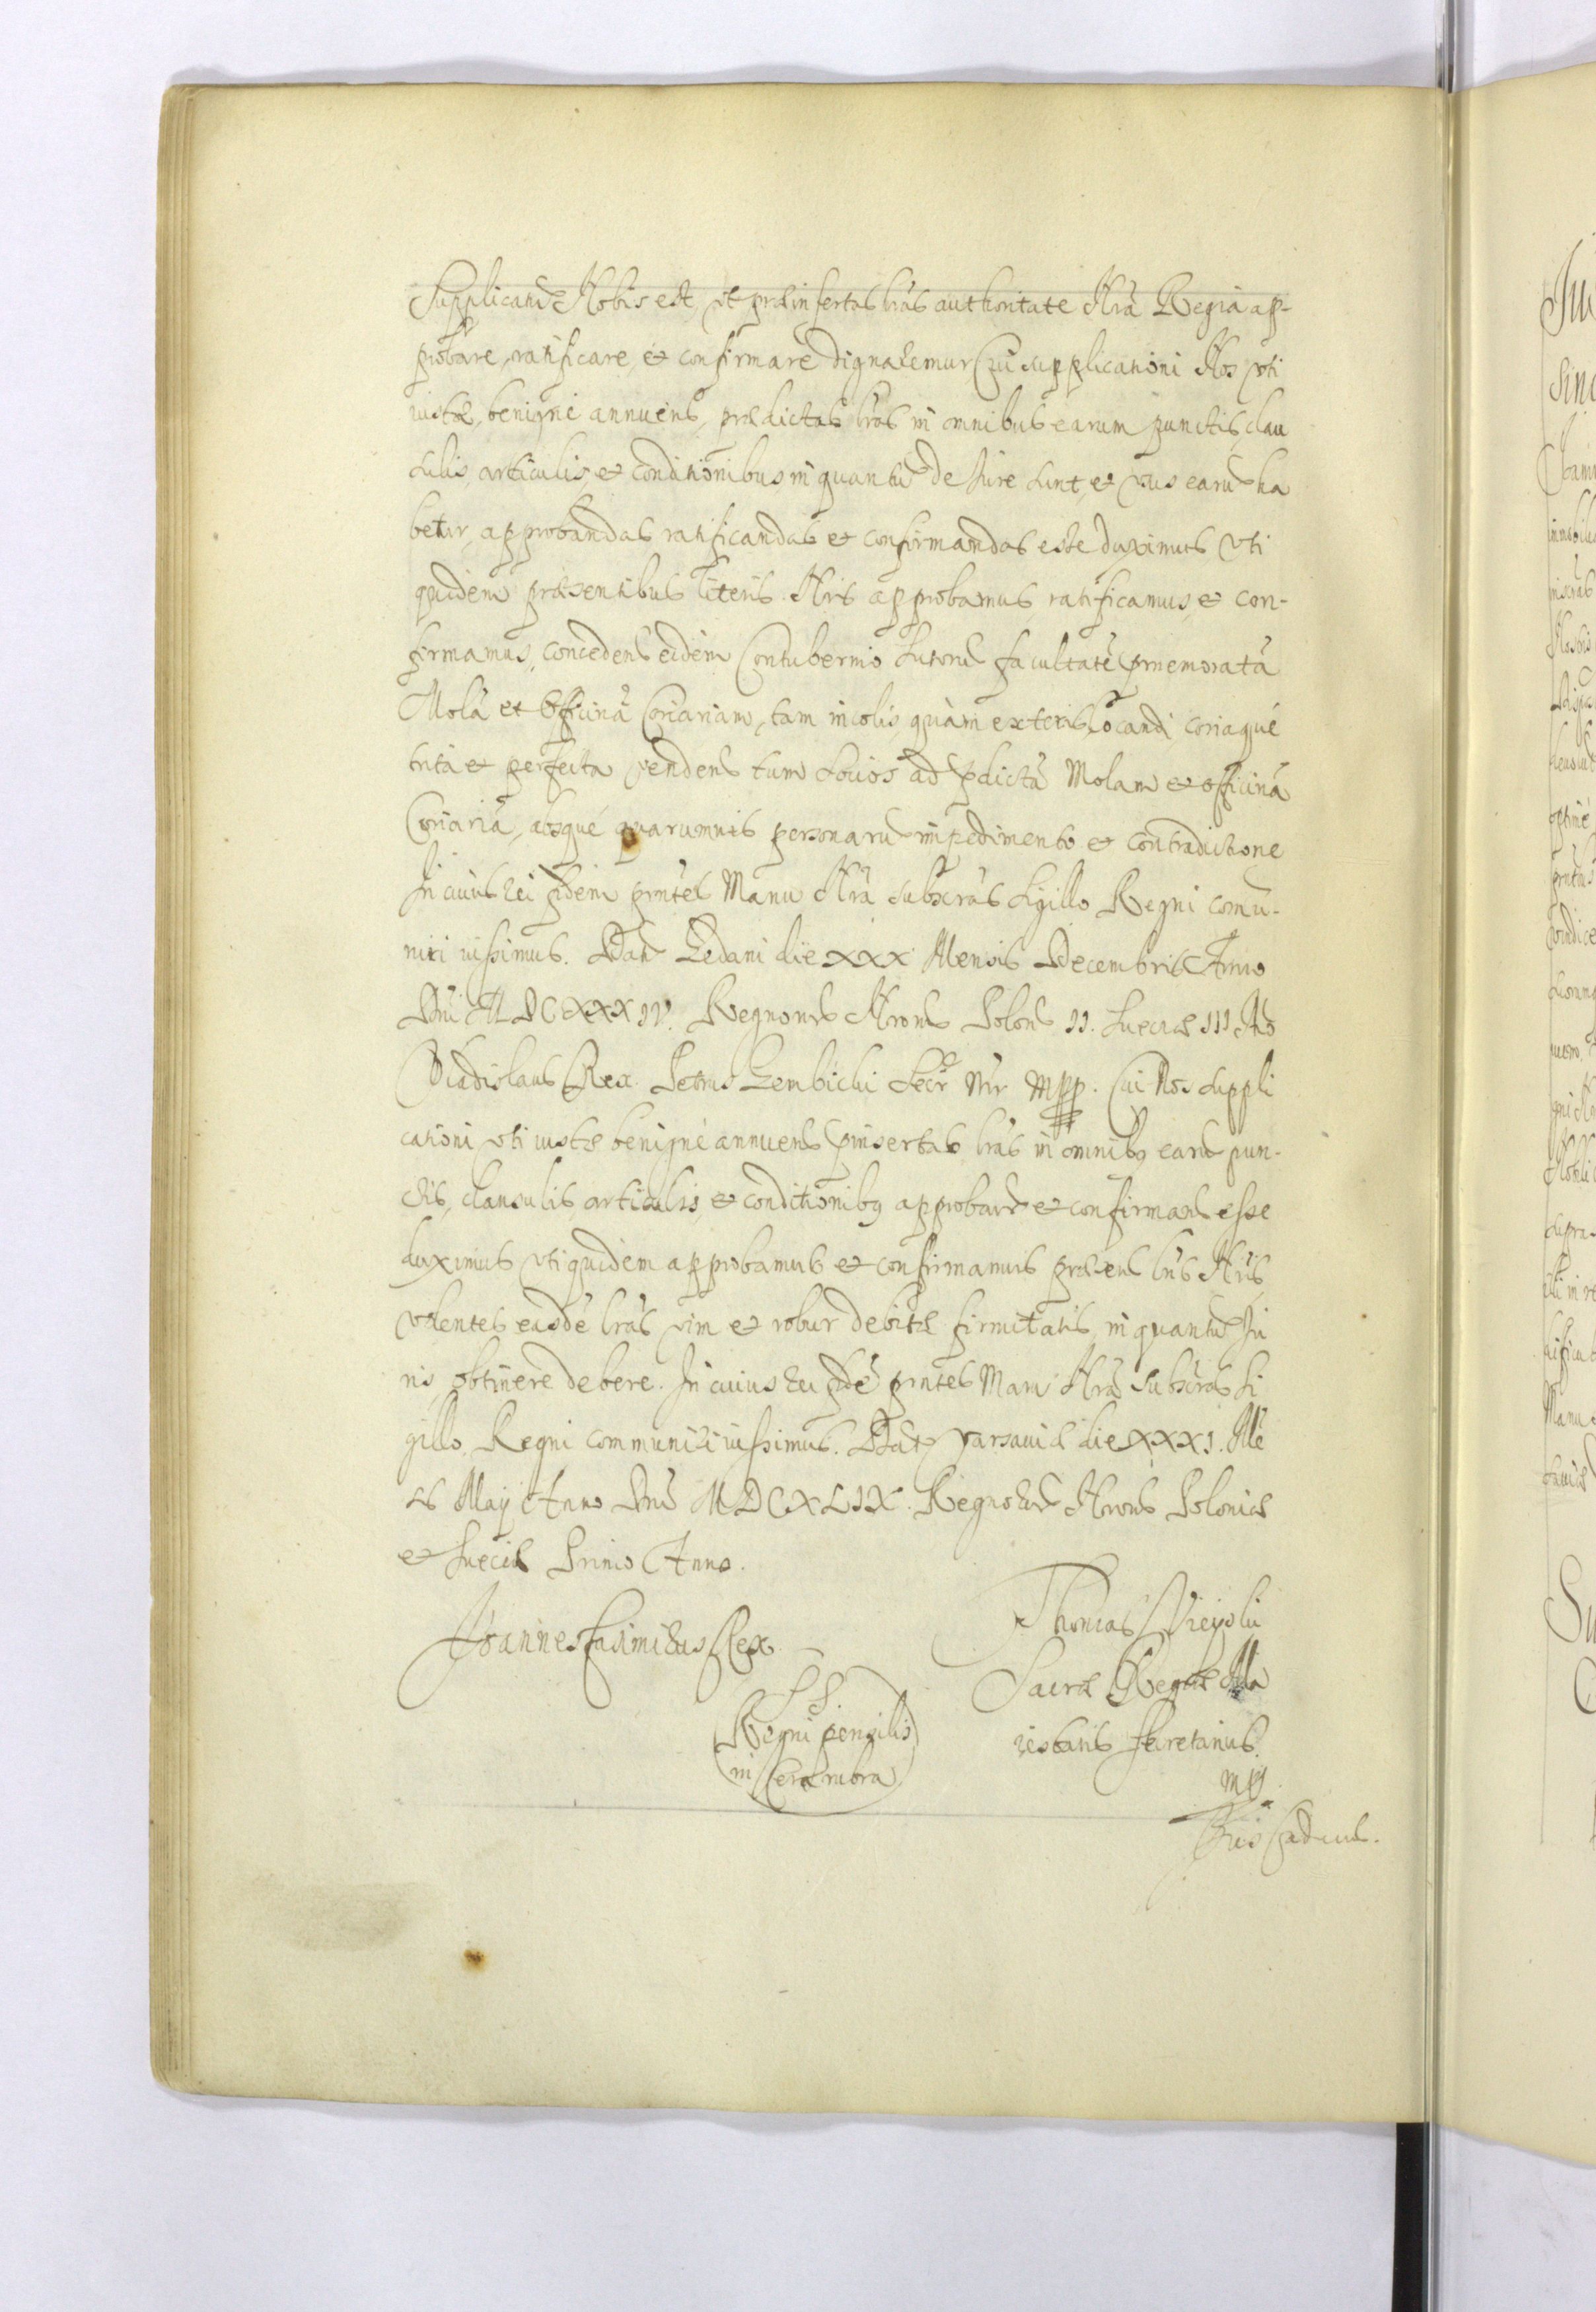 Supplicatum Nobis est, vt præinsertas lras authoritate Nrã Regia ap-
probare, ratificare, et confirmare dignaremur Cui supplicationi Nos vti
iustæ, benigne annuens, prædictas lras in omnibus earum punctis, clau
sulis, articulis, et conditionibus in quantũ de Iure sunt, et vsus earũ ha
betur, approbandas ratificandas et confirmandas esse duximus, vti
quidem præsentibus literis Nris approbamus, ratificamus, et con-
firmamus, concedens eidem Contubernio Sutorũ facultatẽ pmemoratã
Molã et Officinã Coriariam, tam incolis, quàm exteris locandi coriaqué
trita et perfecta vendens tum Socios ad pdictã Molam et officinã
Coriariã, absqué quarumuis personarũ impedimento et contradictione
In cuius rei fidem pntes Manu Nrã subscras Sigillo Regni comu-
niri iussimus. Dat Gedani die XXX Mensis Decembris Anno
Dni MDCXXXIV. Regnorũ Nrorũ Polon II. Sueciæ III Ao
Vladislaus Rex. Petrus Gembicki Secr Mr mpp. Cui Nos suppli
cationi vti iustæ benigné annuens pinsertas lras in omnibq earũ pun-
ctis, clausulis, articulis, et conditionibq approband et confirmand esse
duximus vti quidem approbamus et confirmamus præsens lris Nris,
volentes easdẽ lras vim et robur debitæ firmitatis, in quantũ Iu
ris, obtinere debere. In cuius rei fidẽ pntes Manu Nrã subscras Si
gillo Regni communiri iussimus. Dat Varsauiæ die XXXI. Mẽ
sis Maij Anno Dni MDCXLIX. Regnorũ Nrorũ Poloniæ
et Sueciæ Primo Anno.
Joannes Casimirus Rex.
Thomas Vieyski
Sacræ Regiæ Ma
iestatis Secretarius.
mp
L S.
Regni pensilis
in Cera rubra